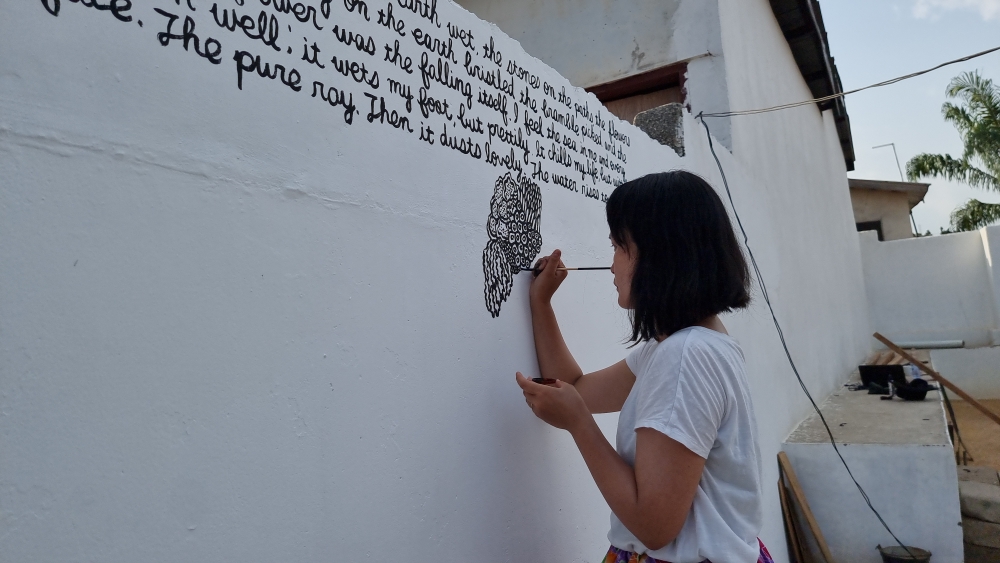 earth wet, the stones on the paths the flowers
on the earth bristled the bramble picked and the
was the falling itself. I feel the sea in me and every
well; it wets my foot, but prettily. It chills my life but
The pure ray. Then it dusts lovely. The water rises